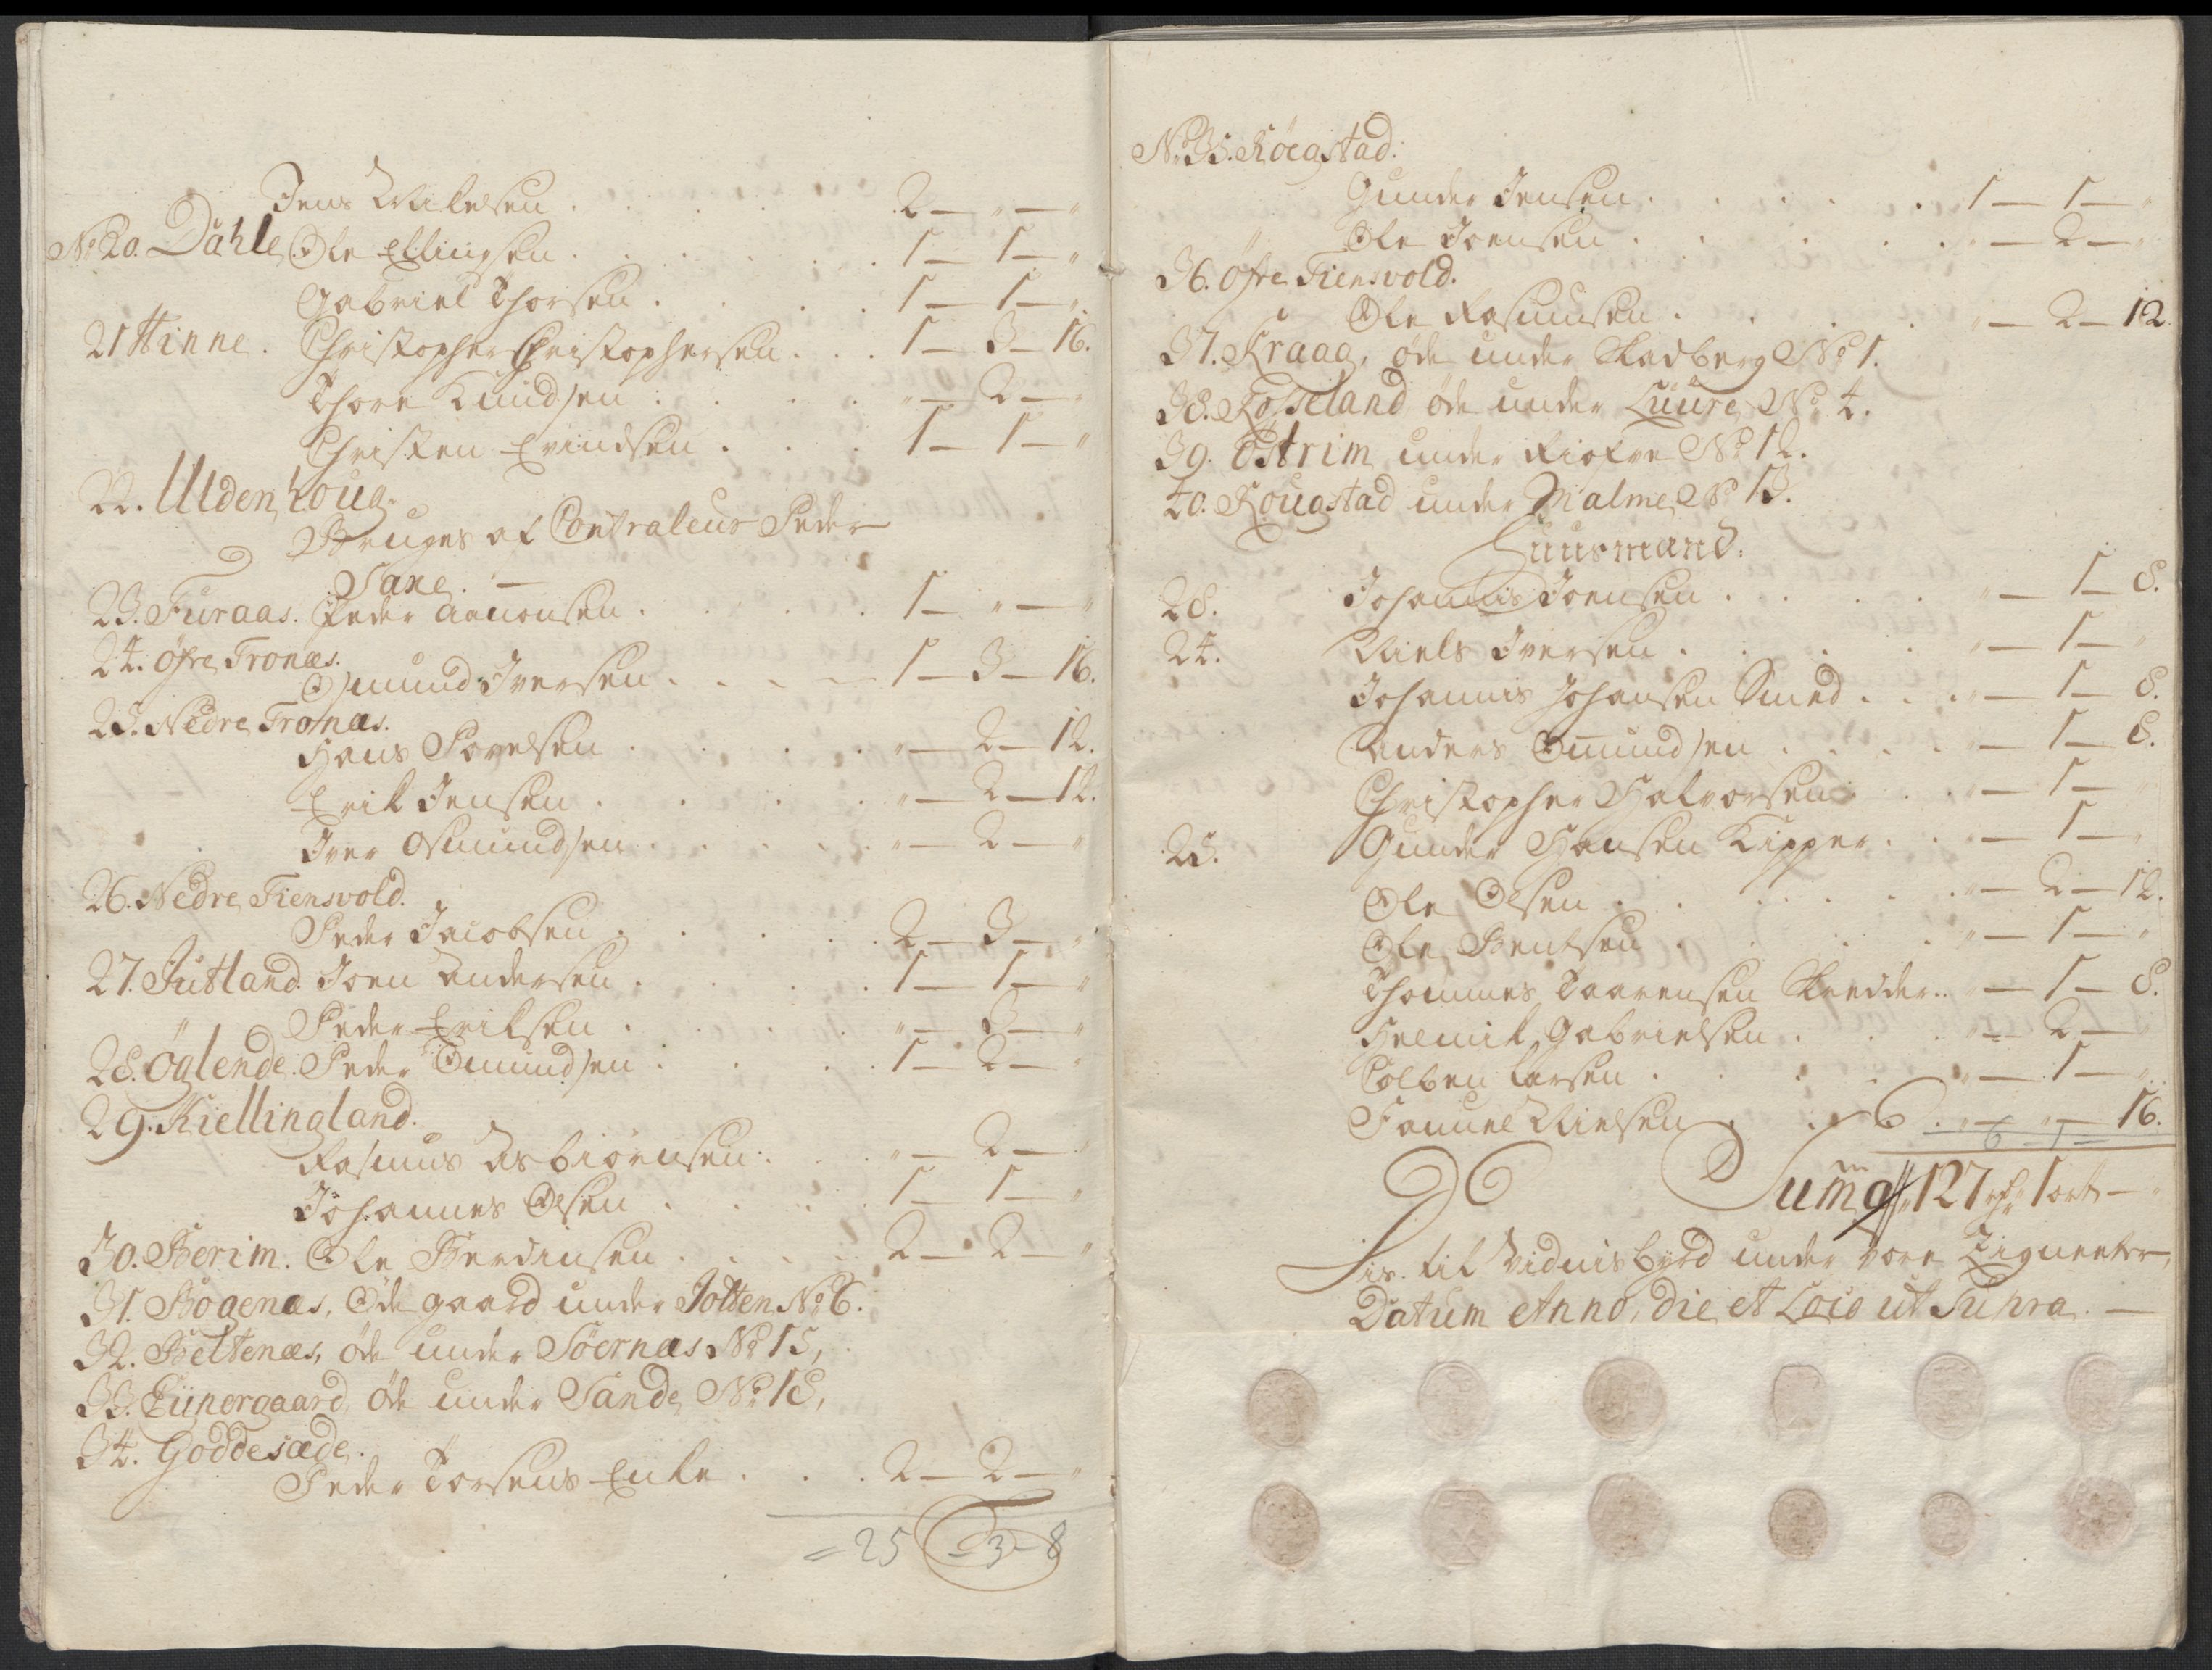 Jens Mikelsen . . . . 2 — " — "
No 20. Dahle Ole Ellingsen . . . . 1 — 1 — "
Gabriel Thorsen . . . . 1 — 1 — "
21 Hinne. Christopher Christophersen . . . 1 — 3 — 16.
Thore Knudsen . . . . " — 2 — "
Christen Evindsen . . . 1 — 1 — "
22. Uldenhoug.
Bruges af Contraleur Peder
Saxe. —
23. Furaas. Peder Aanonsen . . . . 1 — " — "
24. øfre Tronæs.
Osmund Iversen . . . . 1 — 3 — 16.
25. Nedre Tronæs.
Hans Povelsen . . . . " — 2 — 12.
Erik Jensen . . . . " — 2 — 12.
Iver Osmundsen . . . . . " — 2 — "
26. Nedre Tiensvold.
Peder Jacobsen . . . . 2 — 3 — "
27. Jutland. Joen Andersen . . . . 1 — 1 — "
" Peder Eriksen . . . . " — 3 — "
28. Öglende. Peder Omundsen . . . . 1 — 2 — "
29. Kiellingland.
Rasmus Asbiörnsen . . . " — 2 — "
Johannes Olsen . . . . 1 — 1 — "
30. Berim. Ole Berdinsen . . . . 2 — 2 — "
31. Bogenæs, Øde gaard under Jotten No 6.
32. Beltenæs, øde under Söernæs No 15,
33. Eijnergaard, øde under Sande No 18,
34. Goddesæde.
Peder Torsens Enke . . . 2 — 2 — "
= 25 - 3 - 8
No 35. Röegstad.
Gunder Jensen . . . . . 1 — 1 — "
" Ole Joensen . . . . . " — 2 — "
36. øfre Tiensvold.
Ole Rasmusen . . . . " — 2 — 12.
37. Kraag, øde under Skadberg No 1.
38. Kosseland øde under Luure No 4.
39. Östrim under Kiofre No 12.
40. Rougstad under Malme No 13.
Huusmænd.
28. Johannis Joensen . . . . " — 1 — 8.
24. Niels Iversen . . . . " — 1 — "
Johannis Johansen Smed . . . " — 1 — 8.
Anders Omundsen . . . . " — 1 — 8.
Christopher Halvorsen . . " — 1 — "
25. Gunder Hansen Kipper . . " — 1 — "
Ole Olsen . . . . . . " — 2 — 12.
Ole Bentsen . . . . . " — 1 — "
Thommes Taarensen Skredder . . " — 1 — 8.
Helmik Gabrielsen . . . " — 2 —
Tolben Larsen . . . . " — 1 — "
Samuel Nielsen . . . " — " — 16.
6 1
96 Summa 127 rdr 1 ort — "
Dis til Vidnisbyrd under vore Zigneter,
Datum Anno, die et Loco ut Supra. —